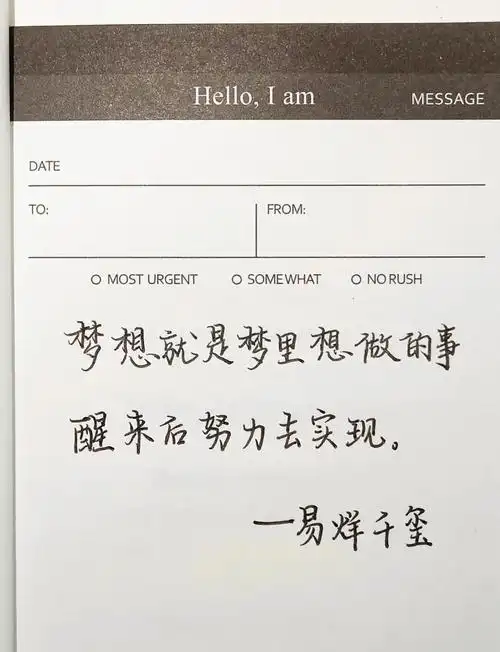 Hello, I am
MESSAGE
DATE
TO:
FROM:
O MOST URGENT O SOMEWHAT O NO RUSH
梦想就是梦里想做的事
醒来后努力去实现。
一易烊千玺